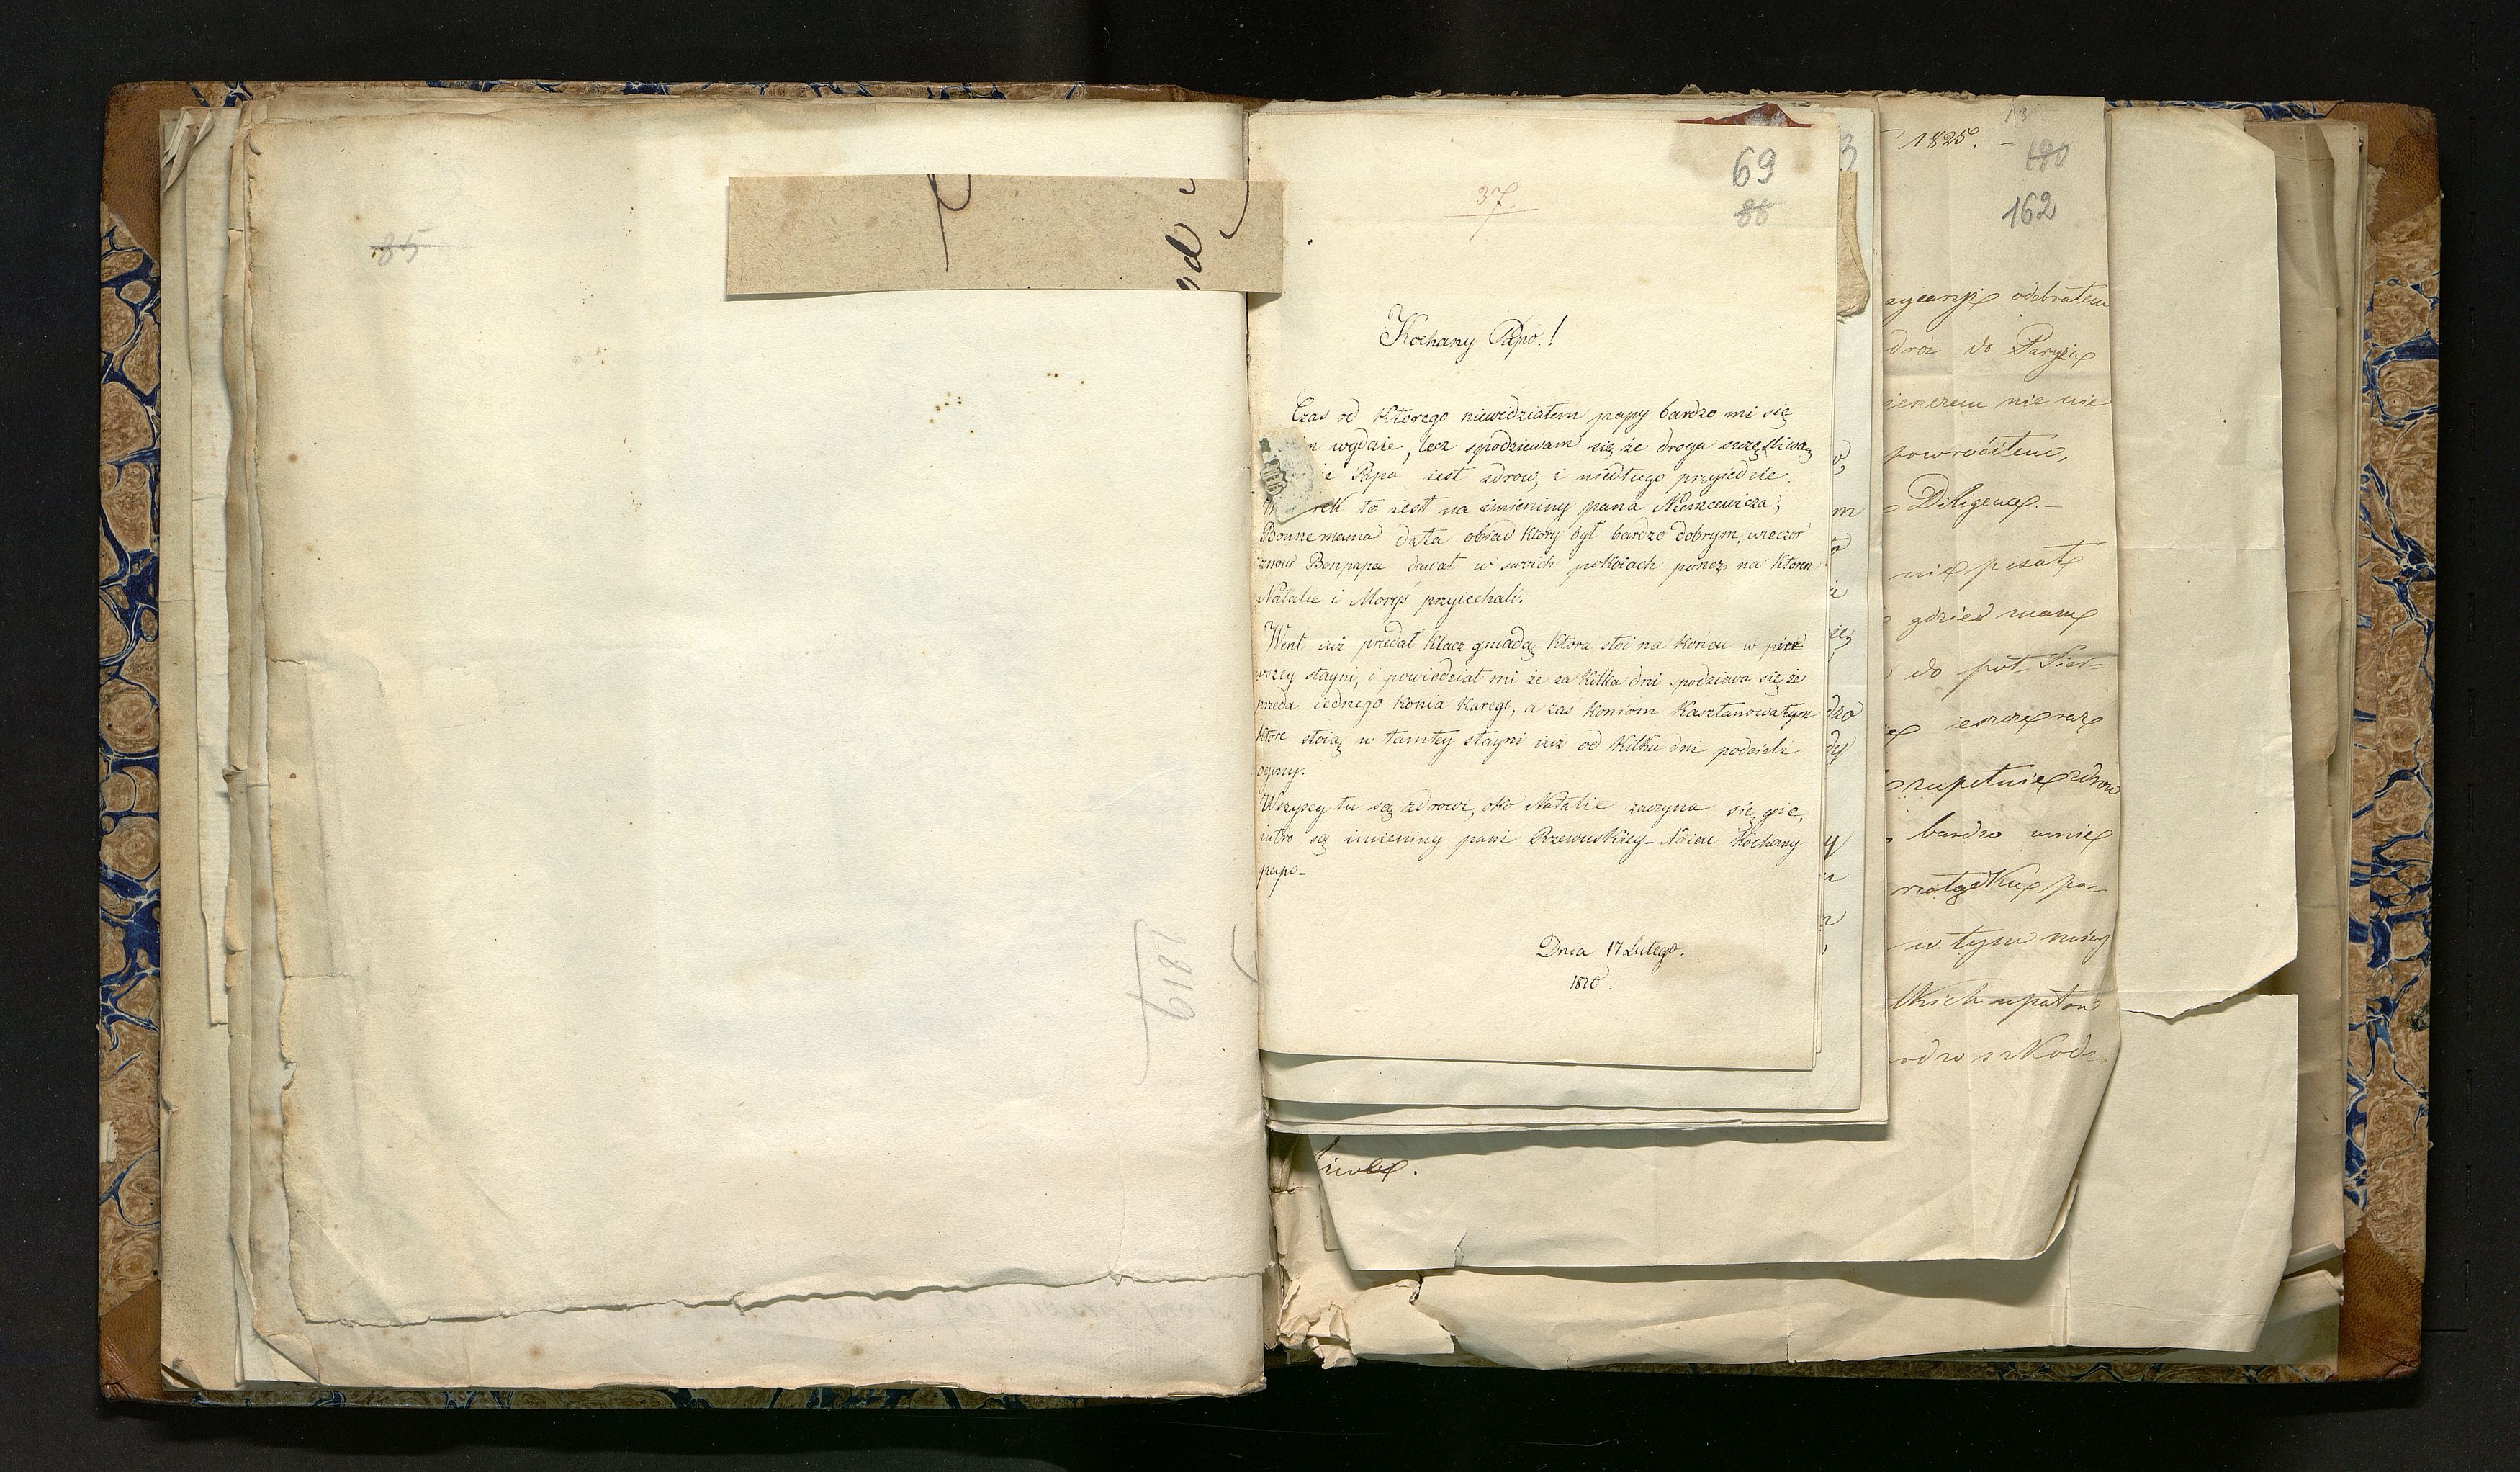 85
od
1819
69
37.
86
Kochany Papo.!
Czas od którego niewidziałem papy bardzo mi się
wydaie, lecz spodziewam się że droga szczęśliwa
Papa iest zdrow, i niedługo przyiedzie.
rek to iest na imieniny pana Niemcewicza,
Bonnemama dała obiad ktory był bardzo dobrym, wieczor
znowu Bonpapa dawał w swoich pokoiach poncz na ktoren
Natalie i Moryś przyiechali.
Went iuż przedał klacz gniadą ktora stoi na końcu w pier
wszey stayni, i powiedział mi że za kilka dni spodziewa się że
przeda iednego konia karego, a zas koniom kasztanowatym
ktore stoią w tamtey stayni iuż od kilku dni podcieli
ogony.
Wszyscy tu są zdrowi, oko Natalie zaczyna się goić,
iutro są imieniny pani Rzewuskiey - Adieu Kochany
papo-
Dnia 17 Lutego.
1820.
3
dzo
dy
1825. -
13
180
162
odebrałem
dróż do Paryża
nie nie
powróciłem,
Diligence. -
nie pisał
gdzieś mamę
do pot Sier-
ieszcze raz
zupełnie zdrow
bardzo mnie
po-
w tym
upałow